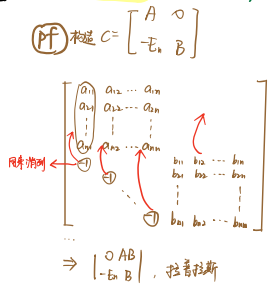 pf 构造 C = [ A 0
-Eₙ B ]
a₁₁ a₁₂ ⋯ a₁ₙ
a₂₁ a₂₂ ⋯ a₂ₙ
⋮ ⋮ ⋮
aₙ₁ aₙ₂ ⋯ aₙₙ
用来消列 ← -1 b₁₁ b₁₂ ⋯ b₁ₙ
-1 b₂₁ b₂₂ ⋯ b₂ₙ
⋱ ⋮ ⋮
-1 bₙ₁ bₙ₂ ⋯ bₙₙ
⋯
⇒ | 0 AB
-Eₙ B | , 拉普拉斯